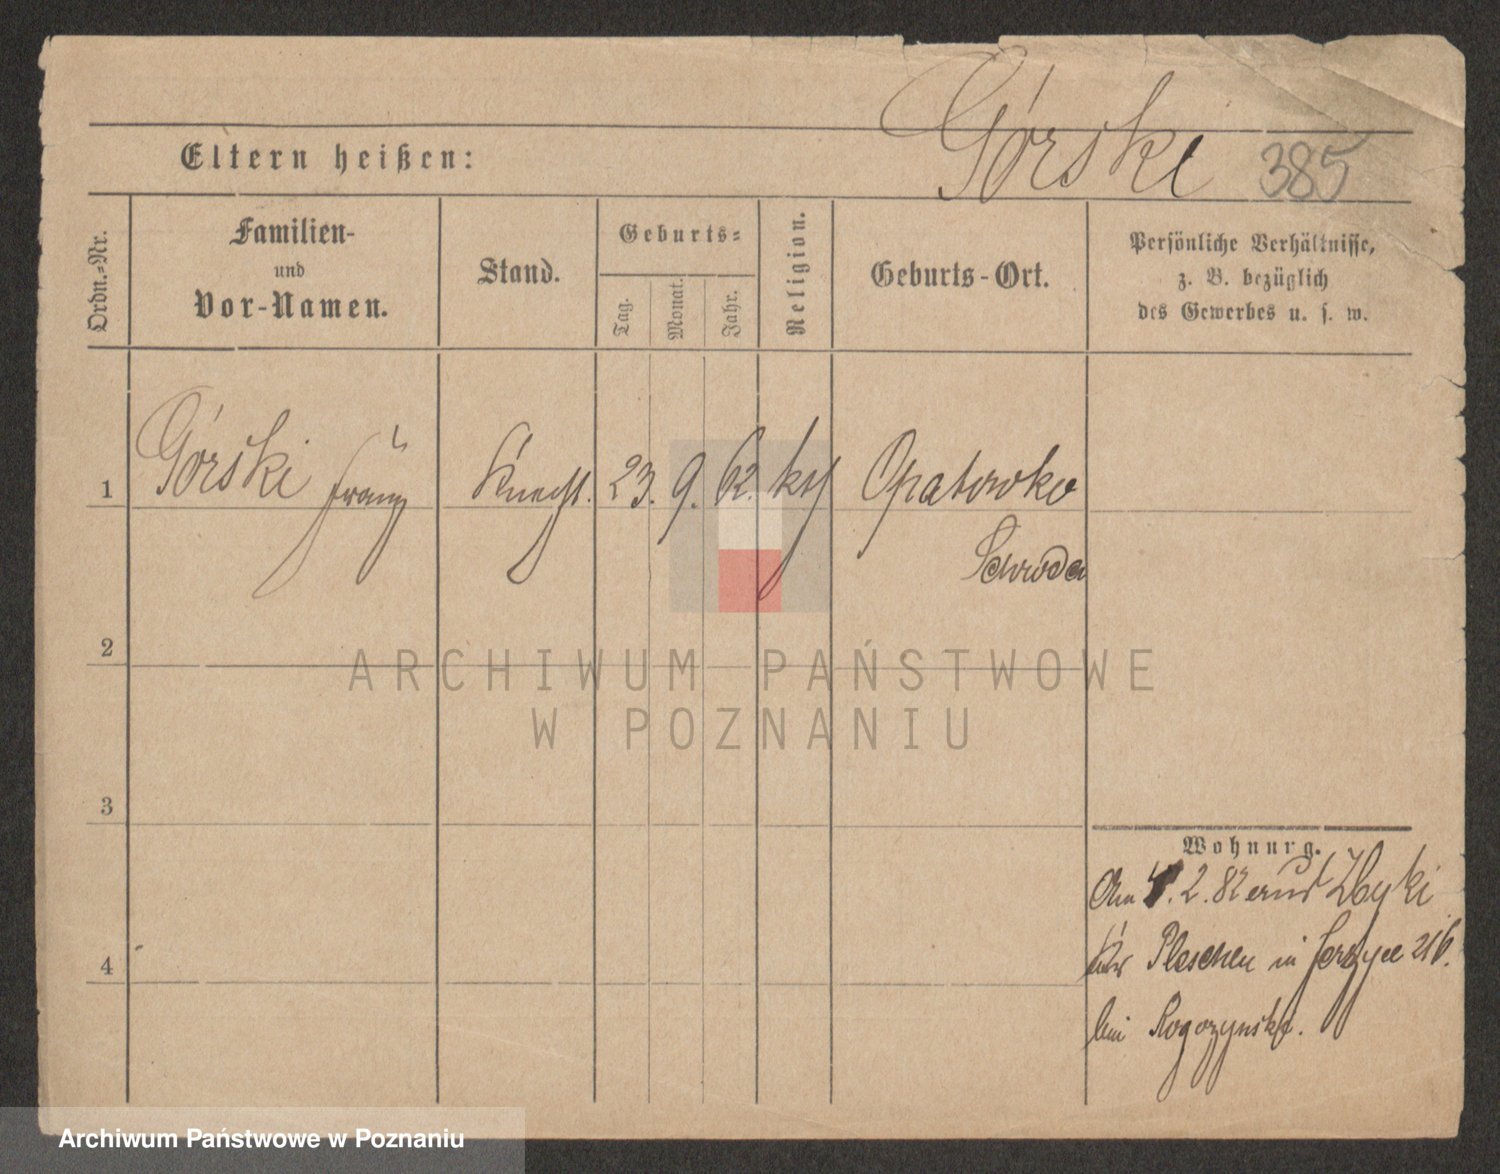 Górski 385
Eltern heißen:
Ordn.-Nr.
Familien-
und
Vor-Namen.
Stand.
Geburts-
Tag.
Monat.
Jahr.
Religion.
Geburts-Ort.
Persönliche Verhältnisse,
z. B. bezüglich
des Gewerbes u. s. w.
1 Górski Franz Knecht. 23. 9. 62. kth Opatowko
Schroda
2
ARCHIWUM PAŃSTWOWE
W POZNANIU
3
4
Wohnung.
Am 4. 2. 82 aus
Kr Pleschen in Jersyce 216.
bei Rogozynski.
Archiwum Państwowe w Poznaniu